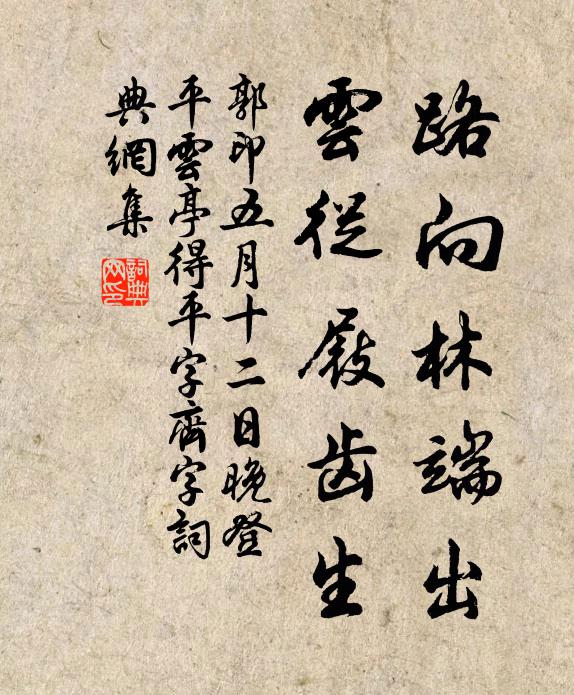 路向林端出
雲從屐齿生
郭印五月十二日晚登
平雲亭得平字齊字詞
典網集
詞典
网印